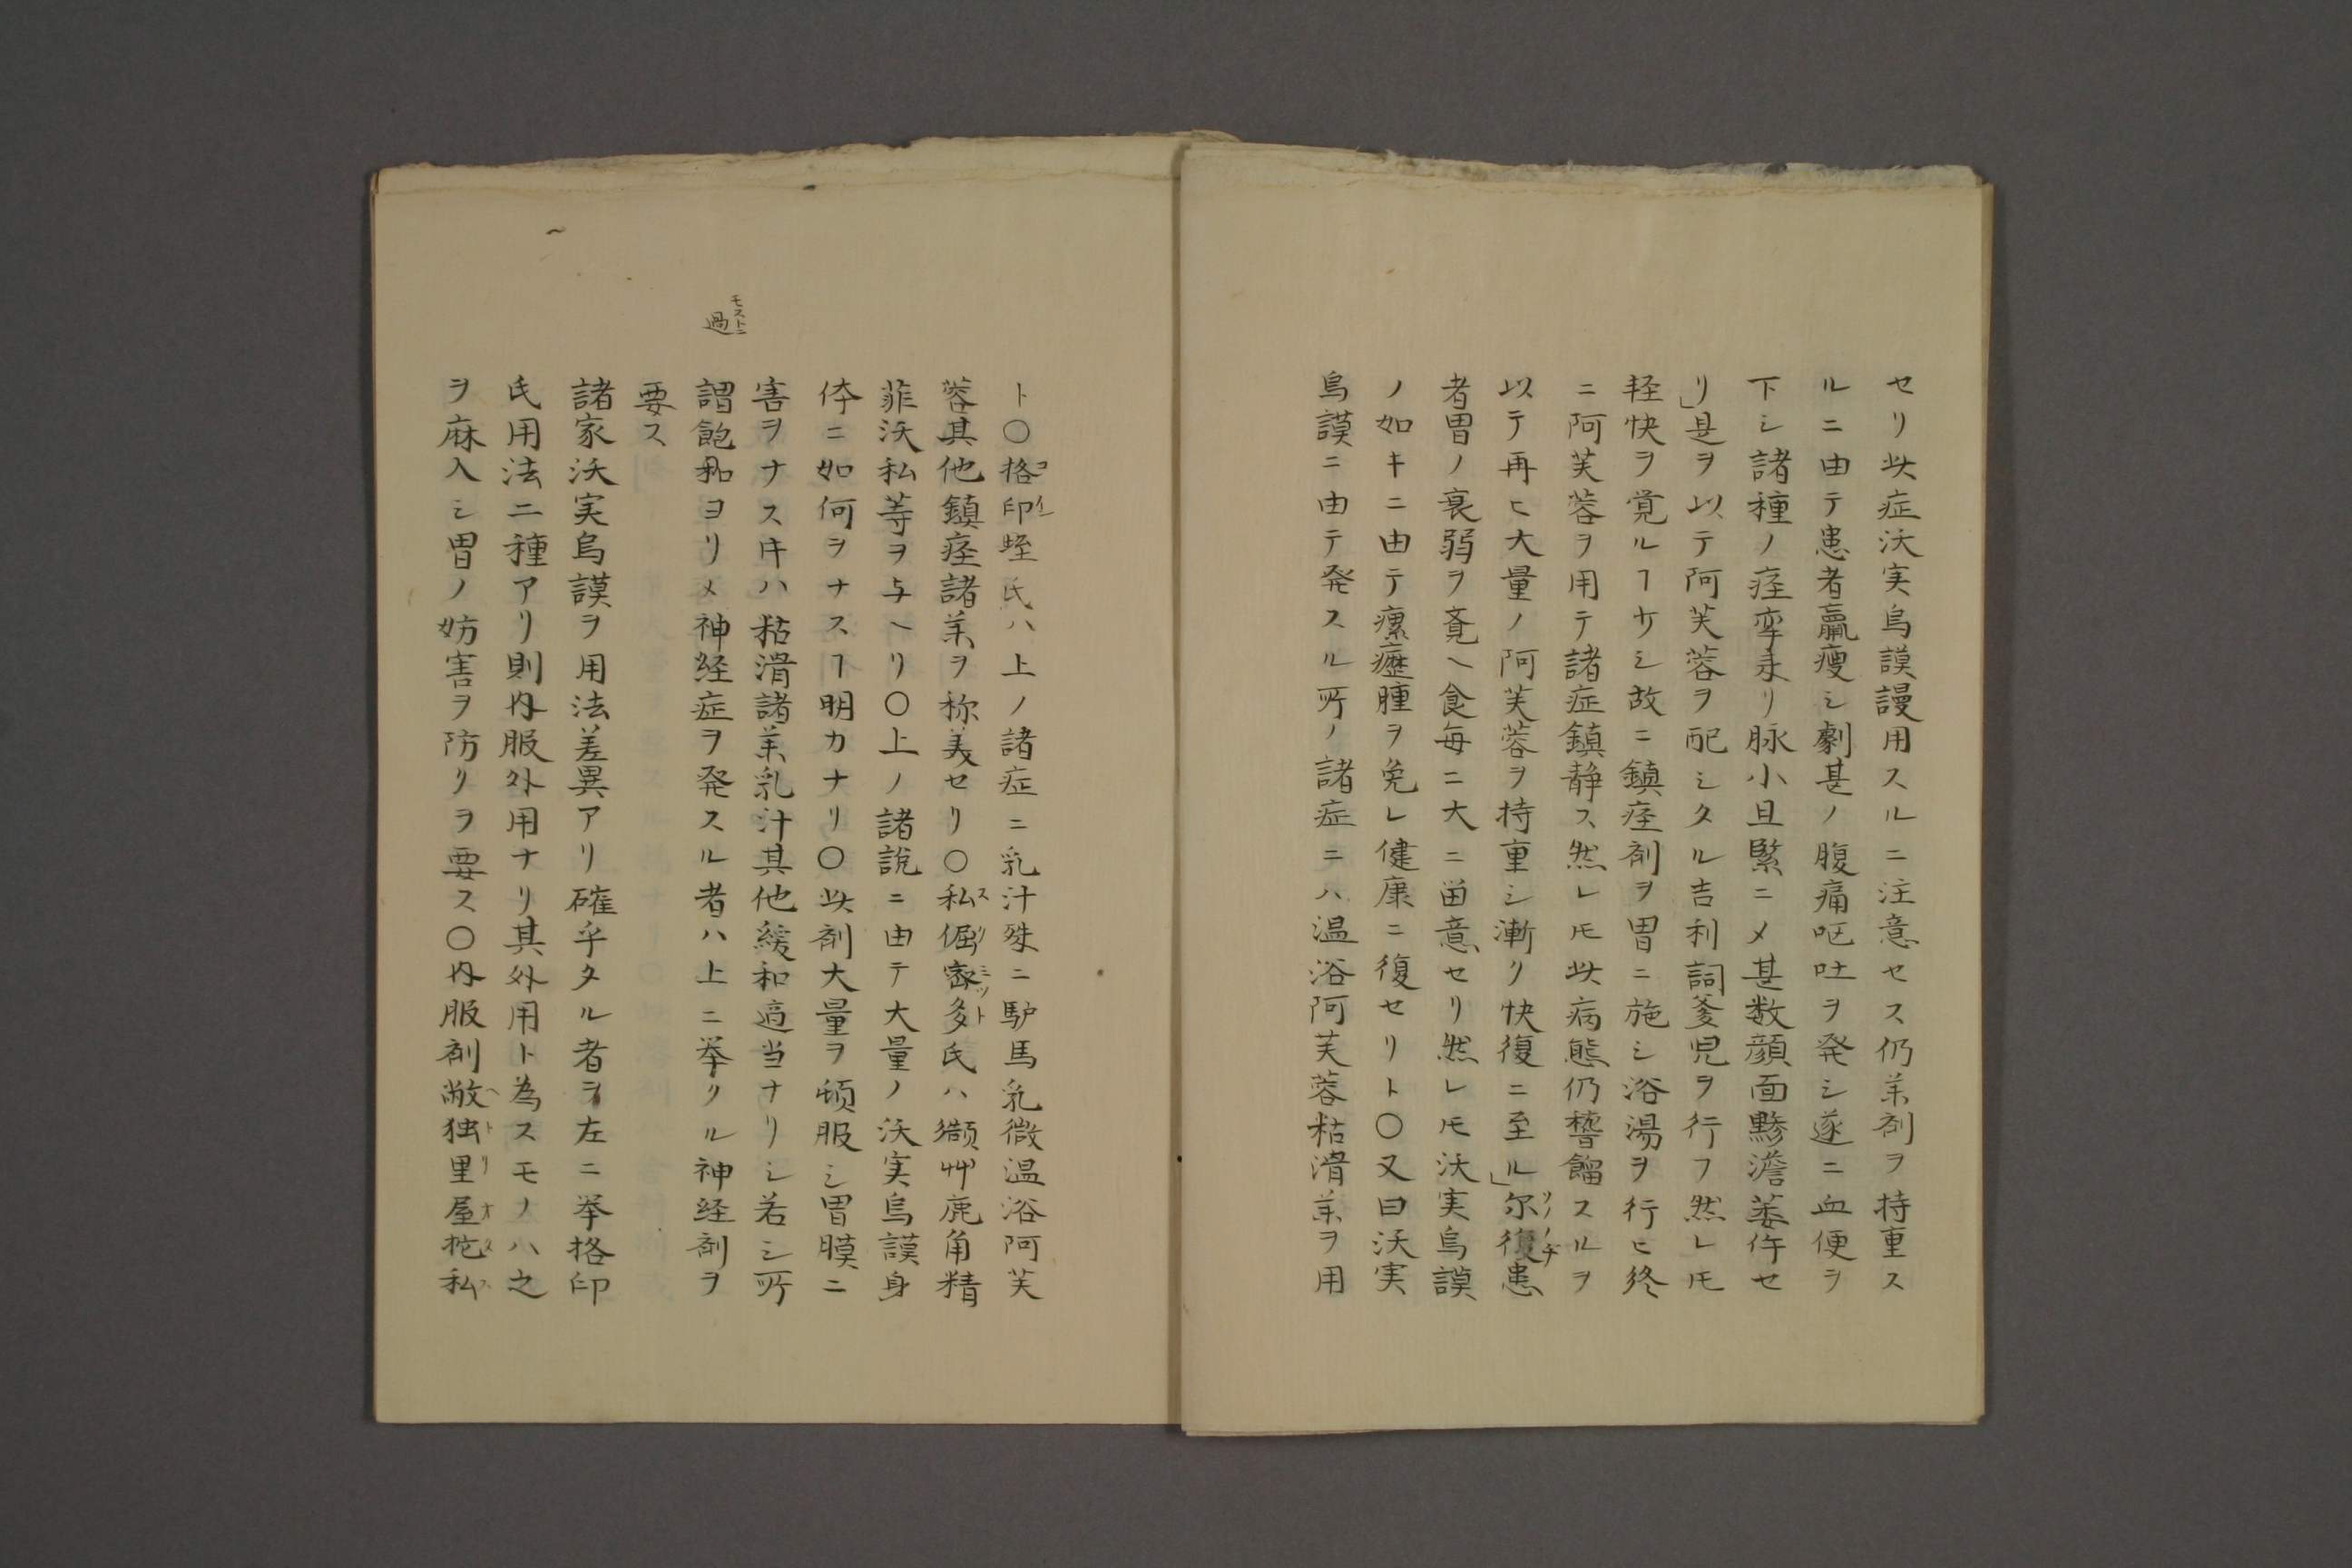 セリ此症沃実烏謨謾用スルニ注意セス仍薬剤ヲ持重ス
ルニ由テ患者羸痩シ劇甚ノ腹痛嘔吐ヲ発シ遂ニ血便ヲ
下シ諸種ノ痙攣来リ脉小且緊ニメ甚数顔面黲澹萎仵セ
リ」是ヲ以テ阿芙蓉ヲ配シタル吉利詞爹児ヲ行フ然レ𪜈
軽快ヲ覚ルヿ少シ故ニ鎮痙剤ヲ胃ニ施シ浴湯ヲ行ヒ終
ニ阿芙蓉ヲ用テ諸症鎮静ス然レ𪜈此病態仍稽留スルヲ
以テ再ヒ大量ノ阿芙蓉ヲ持重シ漸ク快復ニ至ル」尓復患
ソノノチ
者胃ノ衰弱ヲ覚ヘ食毎ニ大ニ留意セリ然レ𪜈沃実烏謨
ノ如キニ由テ瘰癧腫ヲ免レ健康ニ復セリト〇又曰沃実
烏謨ニ由テ発スル所ノ諸症ニハ温浴阿芙蓉粘滑薬ヲ用
ト〇格印蛭氏ハ上ノ諸症ニ乳汁殊ニ馿馬乳微温浴阿芙
蓉其他鎮痙諸薬ヲ称美セリ〇私倔密多氏ハ纈艸鹿角精
スリミット
菲沃私等ヲ与ヘリ〇上ノ諸説ニ由テ大量ノ沃実烏謨身
体ニ如何ヲナスヿ明カナリ〇此剤大量ヲ頓服シ胃膜ニ
害ヲナス片ハ粘滑諸薬乳汁其他緩和適当ナリシ若シ所
過
モストニ
謂飽和ヨリメ神経症ヲ発スル者ハ上ニ挙クル神経剤ヲ
要ス
諸家沃実烏謨ヲ用法差異アリ確乎タル者ヲ左ニ挙格印
氏用法ニ種アリ則内服外用ナリ其外用ト為スモノハ之
ヲ麻入シ胃ノ妨害ヲ防クヲ要ス〇内服剤敝独里屋抡私